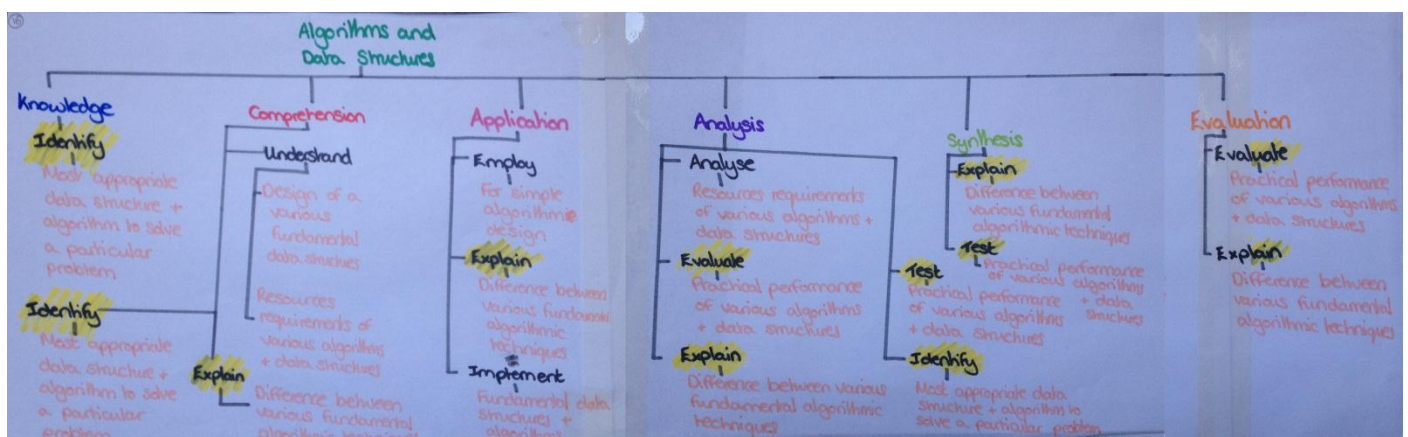 16
Algorithms and
Data Structures
Knowledge
Identify
Most appropriate
data structure +
algorithm to solve
a particular
problem
Identify
Most appropriate
data structure +
algorithm to solve
a particular
problem
Comprehension
Understand
Design of a
various
fundamental
data structures
Resources
requirements of
various algorithms
+ data structures
Explain
Difference between
various fundamental
algorithmic techniques
Application
Employ
For simple
algorithmic
design
Explain
Difference between
various fundamental
algorithmic
techniques
Implement
Fundamental data
structures +
algorithms
Analysis
Analyse
Resources requirements
of various algorithms +
data structures
Evaluate
Practical performance
of various algorithms
+ data structures
Explain
Difference between various
fundamental algorithmic
techniques
Test
Practical performance
of various algorithms
+ data structures
Identify
Most appropriate data
structure + algorithm to
solve a particular problem
Synthesis
Explain
Difference between
various fundamental
algorithmic techniques
Test
Practical performance
of various algorithms
+ data structures
Evaluation
Evaluate
Practical performance
of various algorithms
+ data structures
Explain
Difference between
various fundamental
algorithmic techniques